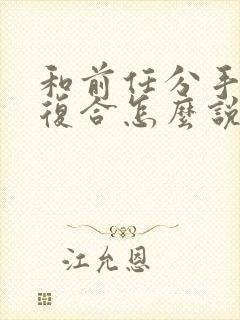 和前任分手
復合怎麼說
江允恩